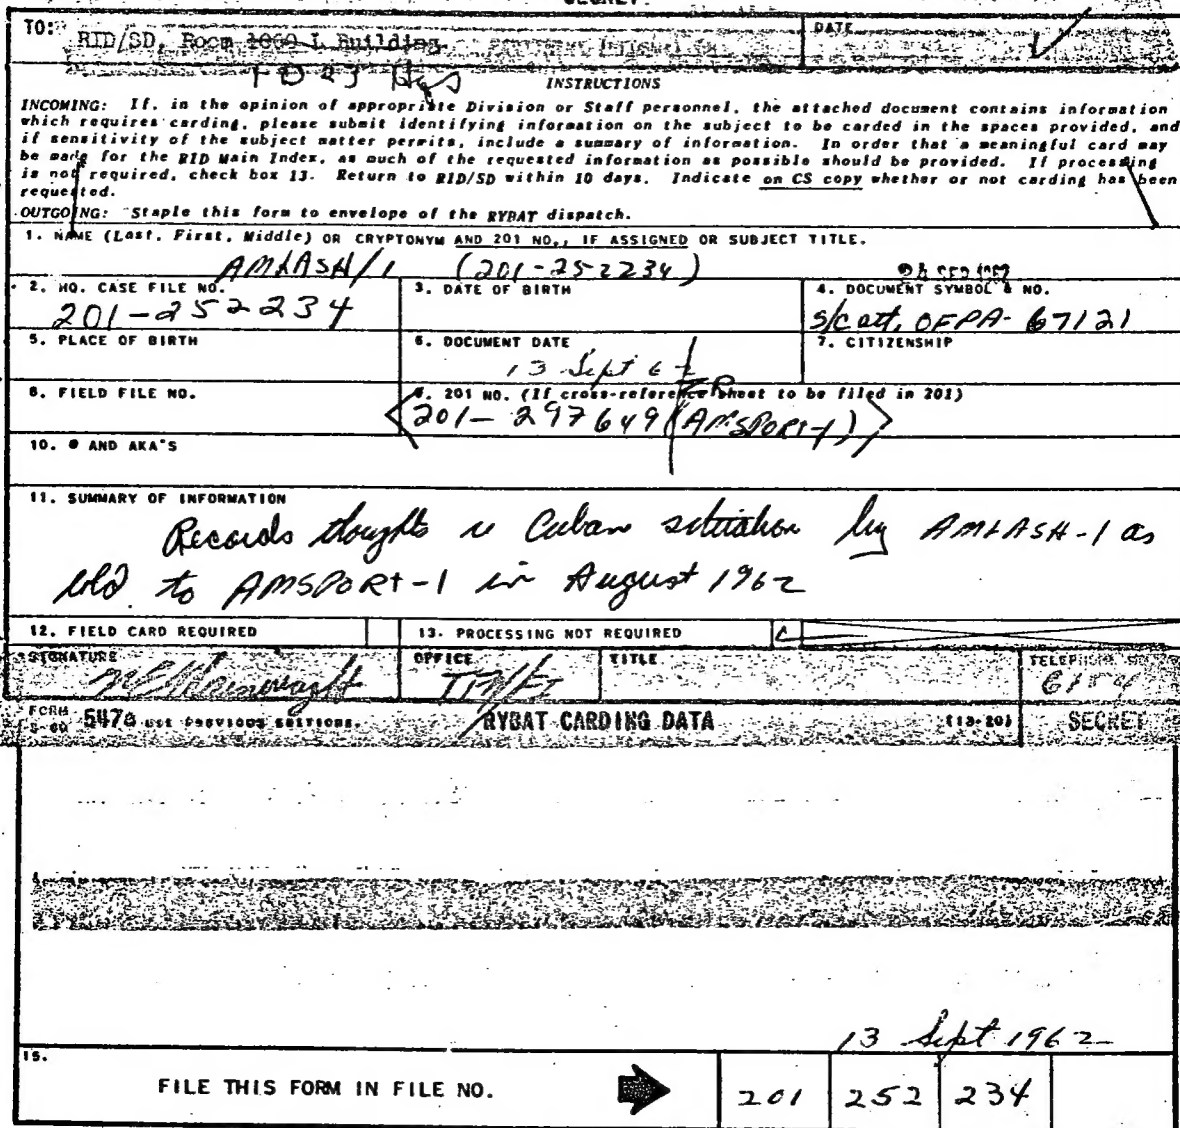 SECRET
TO: RID/SD, Room 1069 L Building
DATE
1D23 Hqs
INSTRUCTIONS
INCOMING: If, in the opinion of appropriate Division or Staff personnel, the attached document contains information
which requires carding, please submit identifying information on the subject to be carded in the spaces provided, and
if sensitivity of the subject matter permits, include a summary of information. In order that a meaningful card may
be made for the RID Main Index, as much of the requested information as possible should be provided. If processing
is not required, check box 13. Return to RID/SD within 10 days. Indicate on CS copy whether or not carding has been
requested.
OUTGOING: Staple this form to envelope of the RYBAT dispatch.
1. NAME (Last, First, Middle) OR CRYPTONYM AND 201 NO., IF ASSIGNED OR SUBJECT TITLE.
AMLASH/1 (201-252234)
2. HQ. CASE FILE NO.
201-252234
3. DATE OF BIRTH
4. DOCUMENT SYMBOL & NO.
s/c att, OFPA-67121
5. PLACE OF BIRTH
6. DOCUMENT DATE
13 Sept 62
7. CITIZENSHIP
8. FIELD FILE NO.
9. 201 NO. (If cross-reference sheet to be filed in 201)
201-297649 (AMSPORT-1)
10. AND AKA'S
11. SUMMARY OF INFORMATION
Records thoughts re Cuban situation by AMLASH-1 as
told to AMSPORT-1 in August 1962
12. FIELD CARD REQUIRED
13. PROCESSING NOT REQUIRED
SIGNATURE
OFFICE
TITLE
TELEPHONE
6154
FORM 547a USE PREVIOUS EDITIONS.
RYBAT CARDING DATA
(13-20)
SECRET
13 Sept 1962
15.
FILE THIS FORM IN FILE NO.
201 252 234